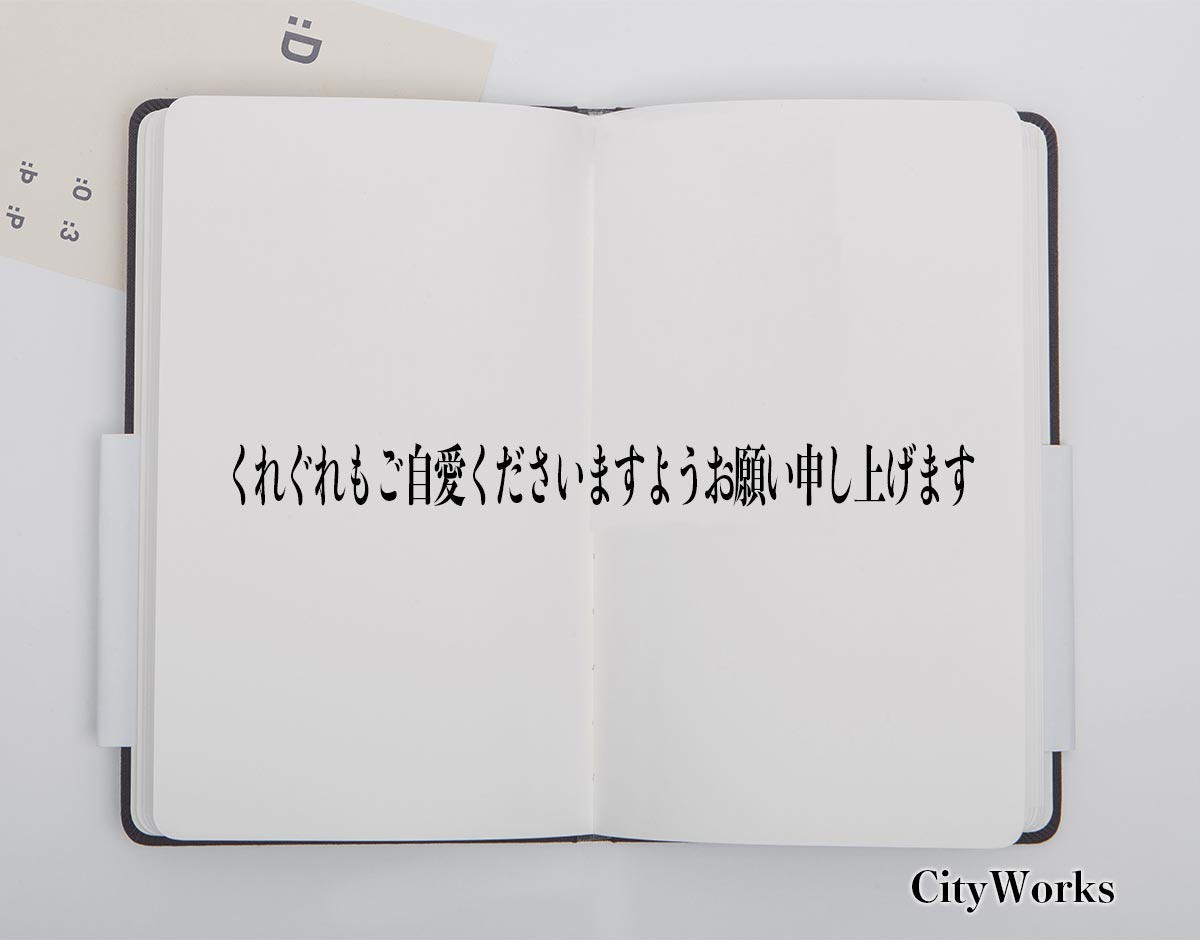 :D
:P
:O
:P
:3
くれぐれもご自愛くださいますようお願い申し上げます
CityWorks